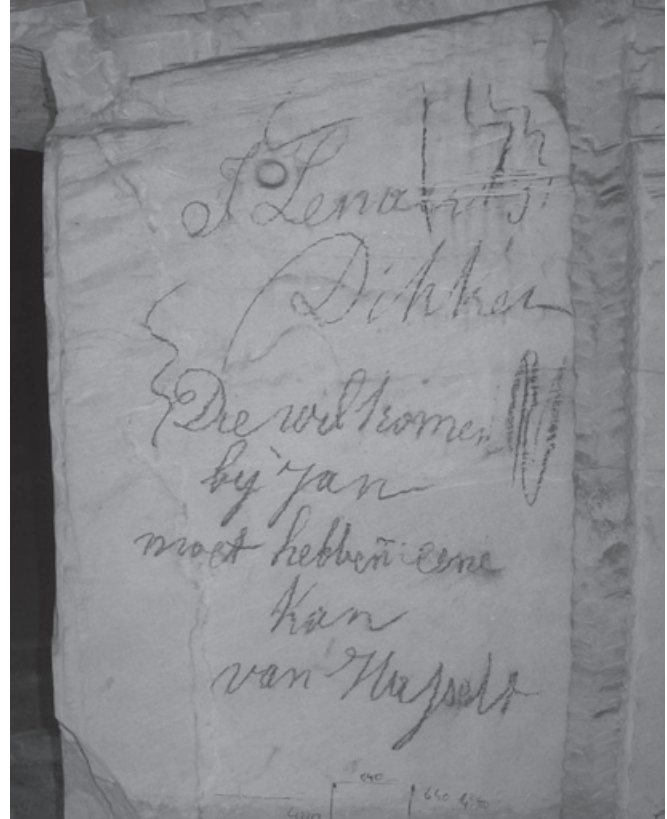 J Lenards
Dikken
Die wil komen
bij Jan
moet hebben eene
kan
van Hasselt
640
640